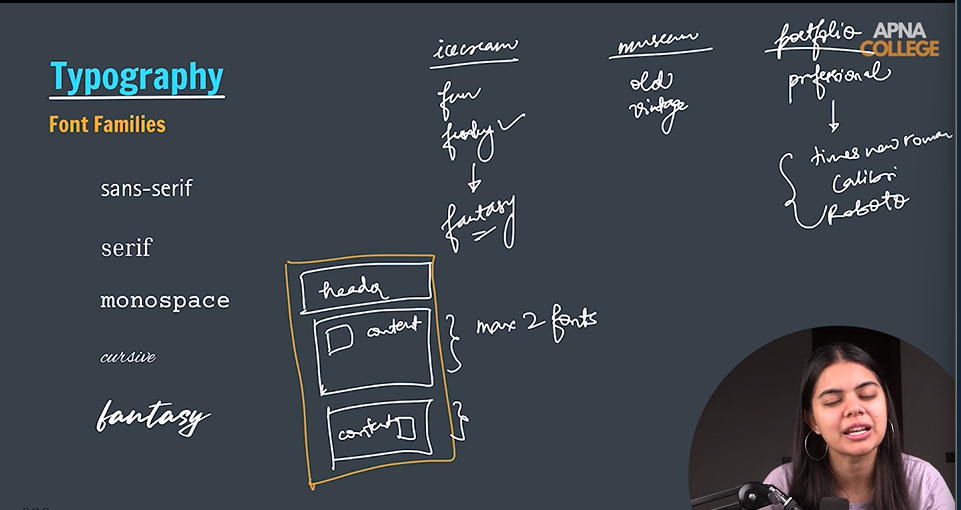 APNA
COLLEGE
Typography
Font Families
sans-serif
serif
monospace
cursive
fantasy
icecream
fun
funky
fantasy
museum
old
vintage
portfolio
professional
times new roman
Calibri
Roboto
header
content
content
max 2 fonts